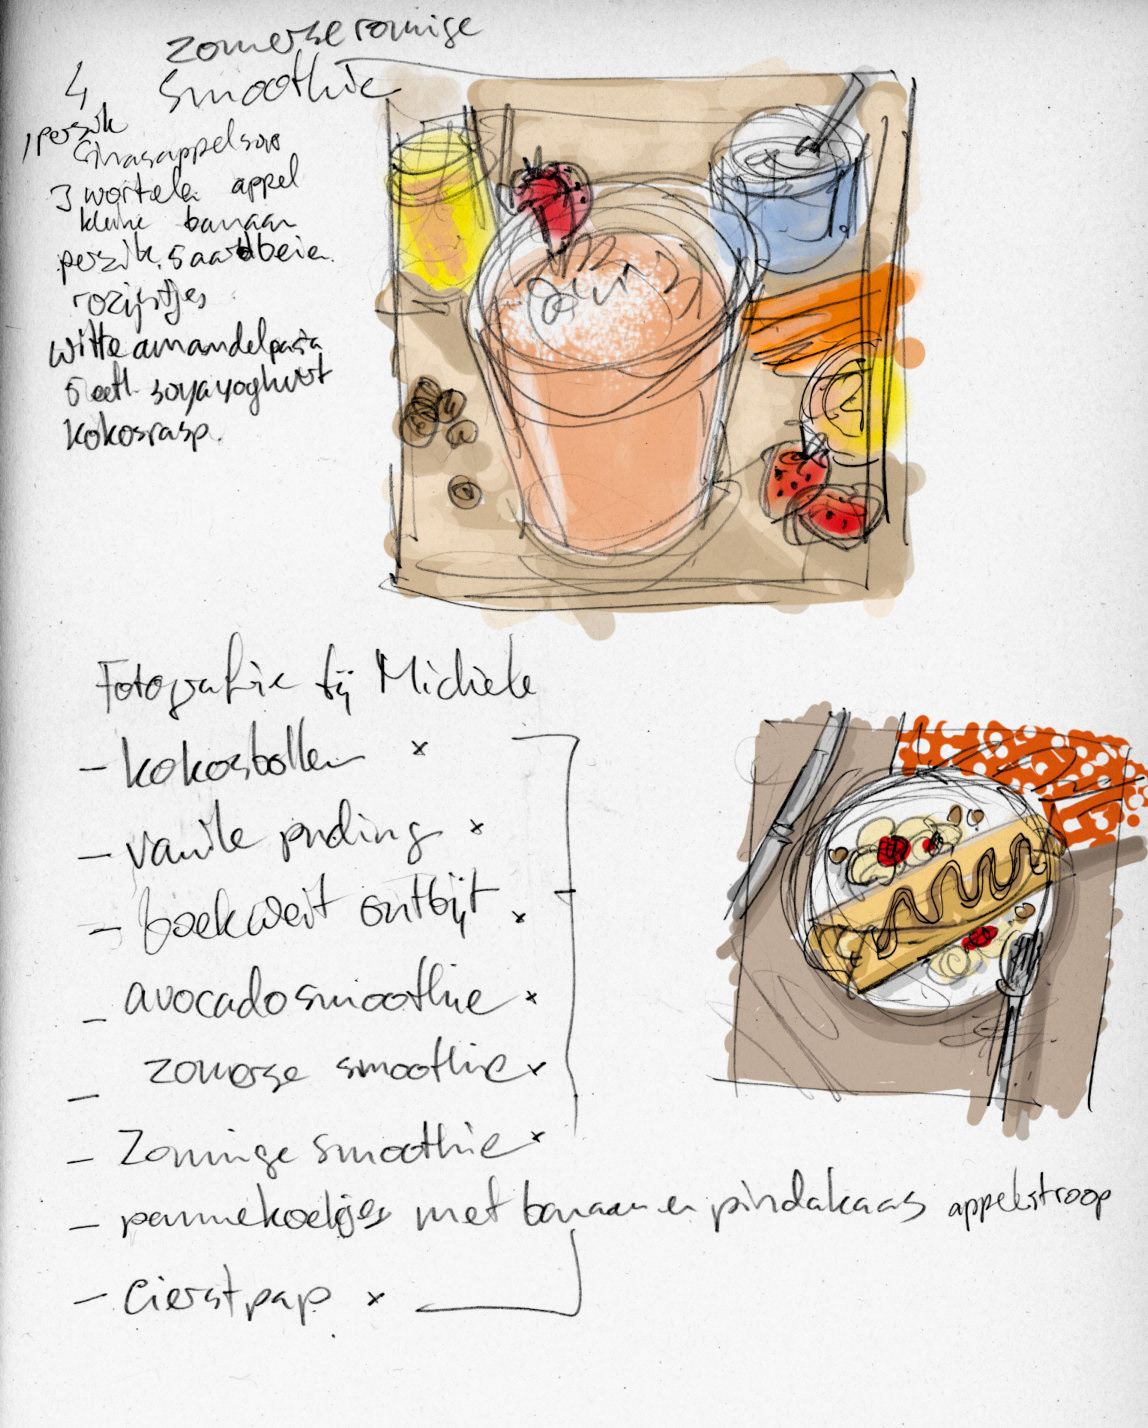 zomerse romige
4 smoothie
1 perzik
sinasappelsap
3 wortels appel
kleine banaan
perzik. 5 aardbeien.
rozijntjes
witte amandelpasta
5 eetl. soyayoghurt
kokosrasp.
Fotografie bij Michiele
- kokosbollen x
- vanille pudding x
- boekweit ontbijt x
- avocadosmoothie x
- zomerse smoothie x
- smoothie x
- pannekoekjes met banaan en pindakaas appelstroop
- Gierstpap x